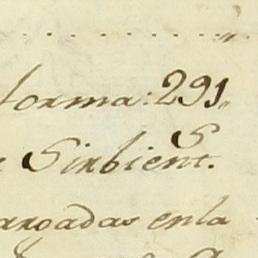 forma: 291,,
Sirbient.s
argadas en la